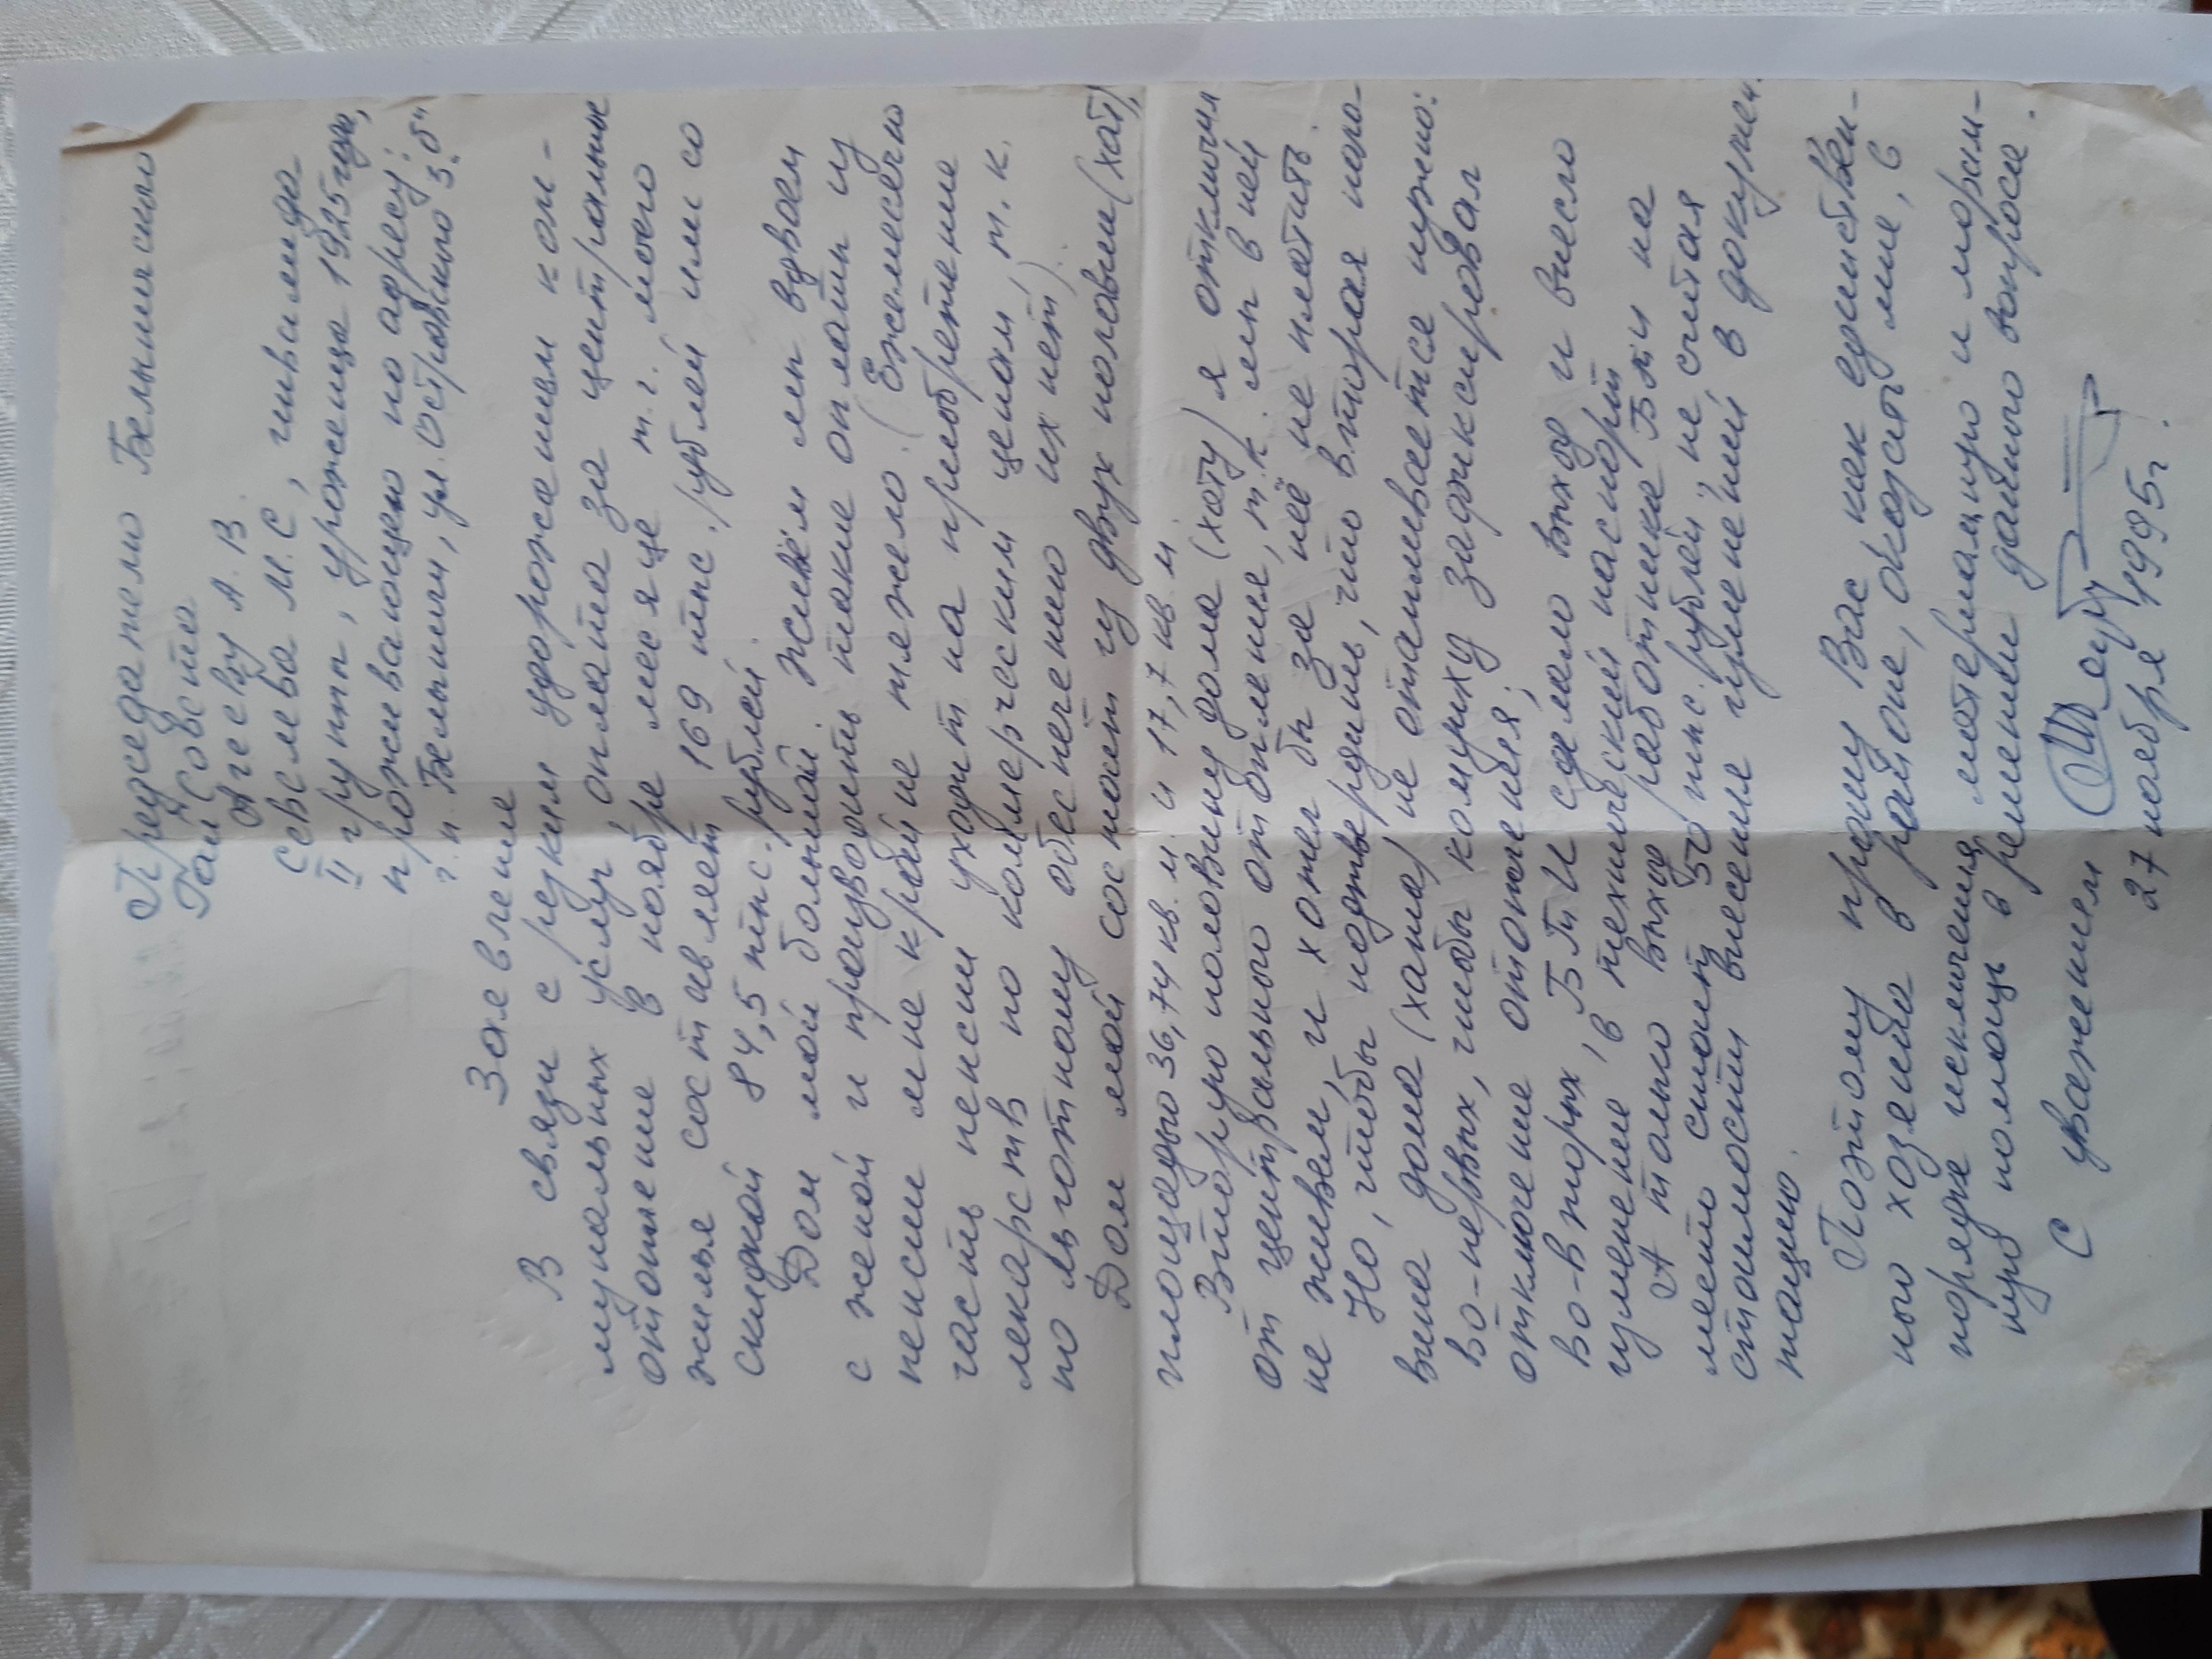 Председателю Белыничского
Рай Совета
Агееву А. В.
Севелева М. С., инвалида
II группы, уроженца 1925 года,
проживающего по адресу:
г. п. Белыничи, ул. Островского 3 "б"
Заявление
В связи с резким удорожанием ком-
мунальных услуг оплата за центральное
отопление в ноябре месяце т. г. моего
жилья составляет 169 тыс. рублей или со
скидкой 84,5 тыс. рублей.
Дом мой большой. Живём мы вдвоем
с женой и производить такие оплаты из
пенсии мне крайне тяжело. (Ежемесячно
часть пенсии уходит на приобретение
лекарств по комерческим ценам, т. к.
по льготному обеспечению их нет).
Дом мой состоит из двух половин (хат),
площадью 36,74 кв. м. и 17,7 кв. м.
Вторую половину дома (хату) я отключил
от центрального отопления, т. к. мы в ней
не живем, и хотел бы за неё не платить.
Но, чтобы подтвердить, что вторая поло-
вина дома (хата) не отапливается нужно:
во-первых, чтобы комунхоз зафиксировал
отключение отопления;
во-вторых, БТИ сделало выход и внесло
изменение в технический паспорт
А только выход работника БТИ на
место стоит 50 тыс. рублей, не считая
стоимости внесение изменений в докумен-
тацию.
Поэтому прошу Вас как единствен-
ного хозяина в районе, оказать мне, в
порядке исключения, материальную и мораль-
ную помощь в решении данного вопроса.
С уважением
27 ноября 1995г.